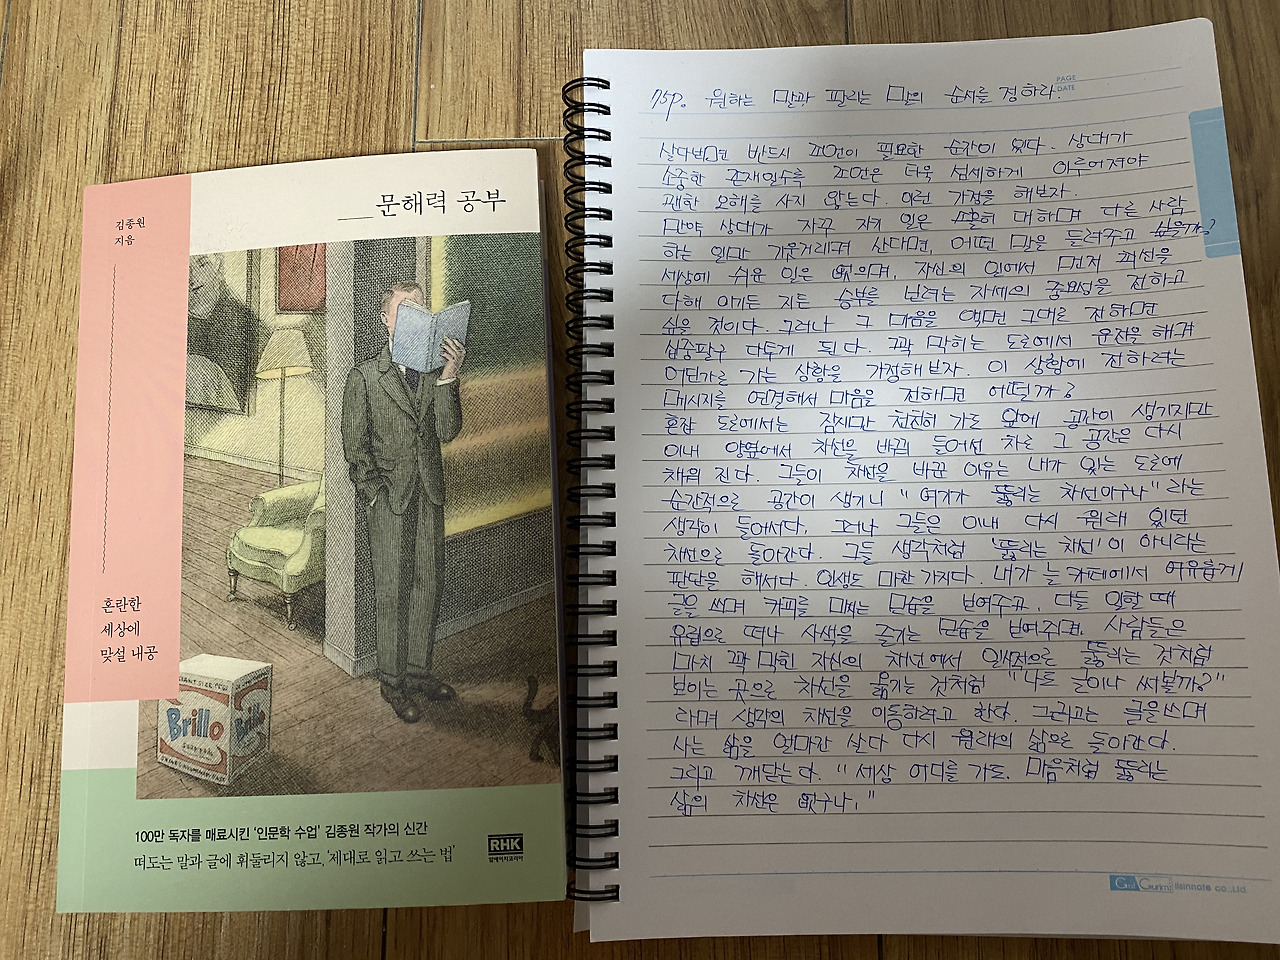 문해력 공부
김종원
지음
혼란한
세상에
맞설 내공
GIANT SIZE PKG.
Brillo
Brillo
100만 독자를 매료시킨 '인문학 수업' 김종원 작가의 신간
떠도는 말과 글에 휘둘리지 않고, '제대로 읽고 쓰는 법'
RHK
알에이치코리아
PAGE
DATE
75p. 원하는 말과 팔리는 말의 순서를 정하라.
살다보면 반드시 조언이 필요한 순간이 있다. 상대가
소중한 존재일수록 조언은 더욱 섬세하게 이루어져야
괜한 오해를 사지 않는다. 이런 가정을 해보자.
만약 상대가 자꾸 자기 일은 소홀히 대하며 다른 사람
하는 일만 기웃거리며 산다면, 어떤 말을 들려주고 싶을까?
세상에 쉬운 일은 없으며, 자신의 일에서 먼저 최선을
다해 이기든 지든 승부를 보려는 자세의 중요성을 전하고
싶을 것이다. 그러나 그 마음을 액면 그대로 전하면
십중팔구 다투게 된다. 꽉 막히는 도로에서 운전을 해서
어딘가로 가는 상황을 가정해보자. 이 상황에 전하려는
메시지를 연결해서 마음을 전하면 어떨까?
혼잡 도로에서는 잠시만 천천히 가도 앞에 공간이 생기지만
이내 양옆에서 차선을 바꿔 들어선 차로 그 공간은 다시
채워 진다. 그들이 차선을 바꾼 이유는 내가 있는 도로에
순간적으로 공간이 생기니 "여기가 뚫리는 차선이구나" 라는
생각이 들어서다. 그러나 그들은 이내 다시 원래 있던
차선으로 돌아간다. 그들 생각처럼 '뚫리는 차선'이 아니라는
판단을 해서다. 인생도 마찬가지다. 내가 늘 카페에서 여유롭게
글을 쓰며 커피를 마시는 모습을 보여주고, 다들 일할 때
유럽으로 떠나 사색을 즐기는 모습을 보여주면, 사람들은
마치 꽉 막힌 자신의 차선에서 일시적으로 뚫리는 것처럼
보이는 곳으로 차선을 옮기는 것처럼 "나도 글이나 써볼까?"
라며 생각의 차선을 이동하려고 한다. 그리고는 글을 쓰며
사는 삶을 얼마간 살다 다시 원래의 삶으로 돌아간다.
그리고 깨닫는다. "세상 어디를 가도, 마음처럼 뚫리는
삶의 차선은 없구나."
ilsinnote co.,Ltd